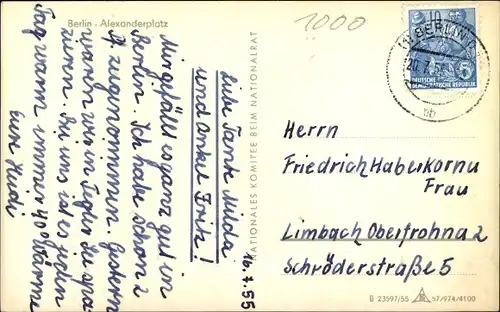 Berlin - Alexanderplatz
1000
Liebe Tante Milda
und Onkel Fritz!
16.7.55
Mir gefällt es ganz gut in
Berlin. Ich habe schon 2
zugenommen. Gestern
waren wir in Tegler See
Bei uns ist es jeden
Tag warm immer 40° Wärme
Eure Heidi
NATIONALES KOMITEE BEIM NATIONALRAT
BERLIN
20.7.55
DEUTSCHE
DEMOKRATISCHE REPUBLIK
5
Herrn
Friedrich Haberkorn u
Frau
Limbach Oberfrohna 2
Schröderstraße 5
B 23597/55 57/974/4100